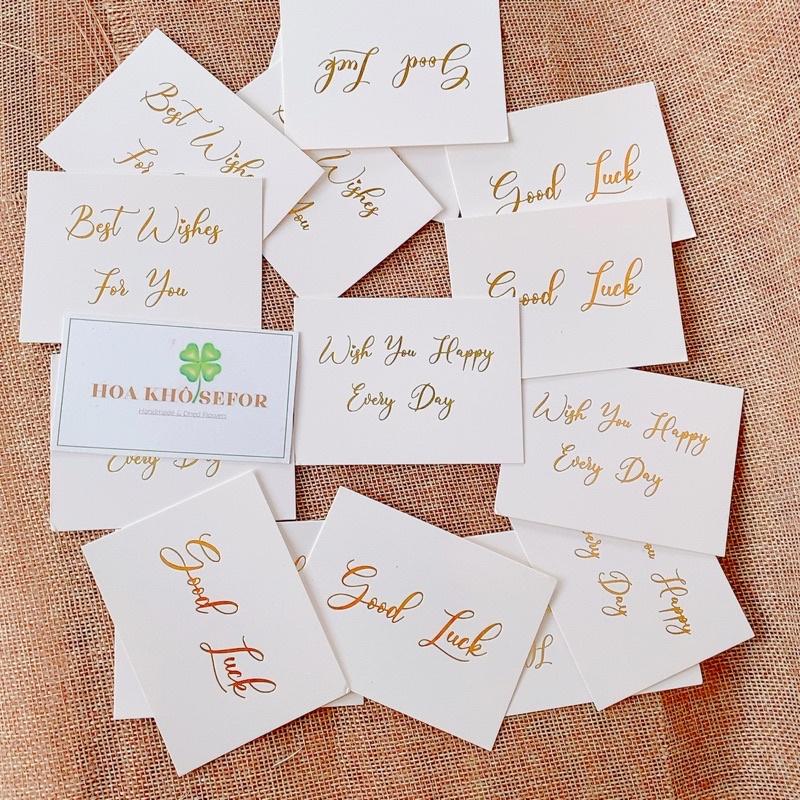 Good Luck
Best Wishes
For
Wishes
You
Good Luck
Best Wishes
For You
Good Luck
HOA KHÔ SEFOR
Handmade & Dried Flowers
Wish You Happy
Every Day
Wish You Happy
Every Day
Every Day
Good
Luck
Good Luck
You Happy
Every Day